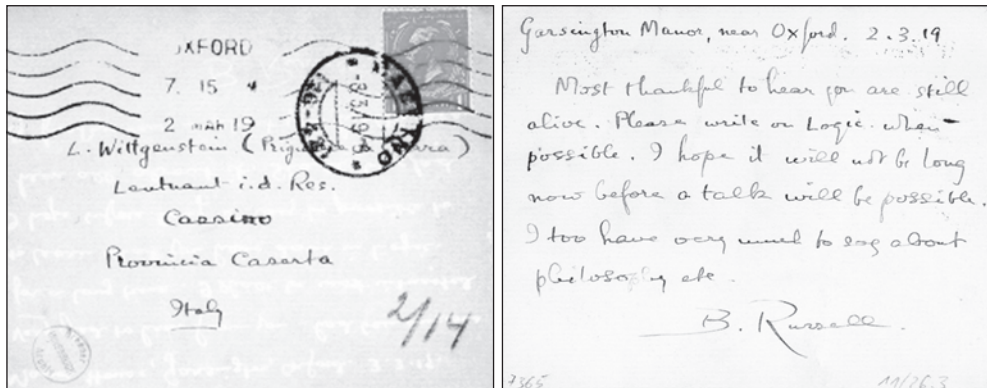 OXFORD
7. 15
2 MAR 19
L. Wittgenstein (
Leutnant i.d. Res.
Cassino
Provincia Caserta
Italy
2/14
Garsington Manor, near Oxford. 2.3.19
Most thankful to hear you are still
alive. Please write on Logic when
possible. I hope it will not be long
now before a talk will be possible.
I too have very much to say about
philosophy etc.
B. Russell.
7365
11/26.3